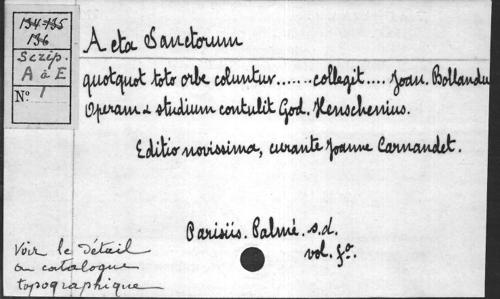 134-135
136
Scrip.
A à E
N° 1
Acta Sanctorum
quotquot toto orbe coluntur......collegit.... Joan. Bollandu
Operam & studium contulit God. Henschenius.
Editio novissima, curante Joanne Carnandet.
Parisiis. Palmé. s.d.
vol. fo.
Voir le détail
au catalogue
topographique